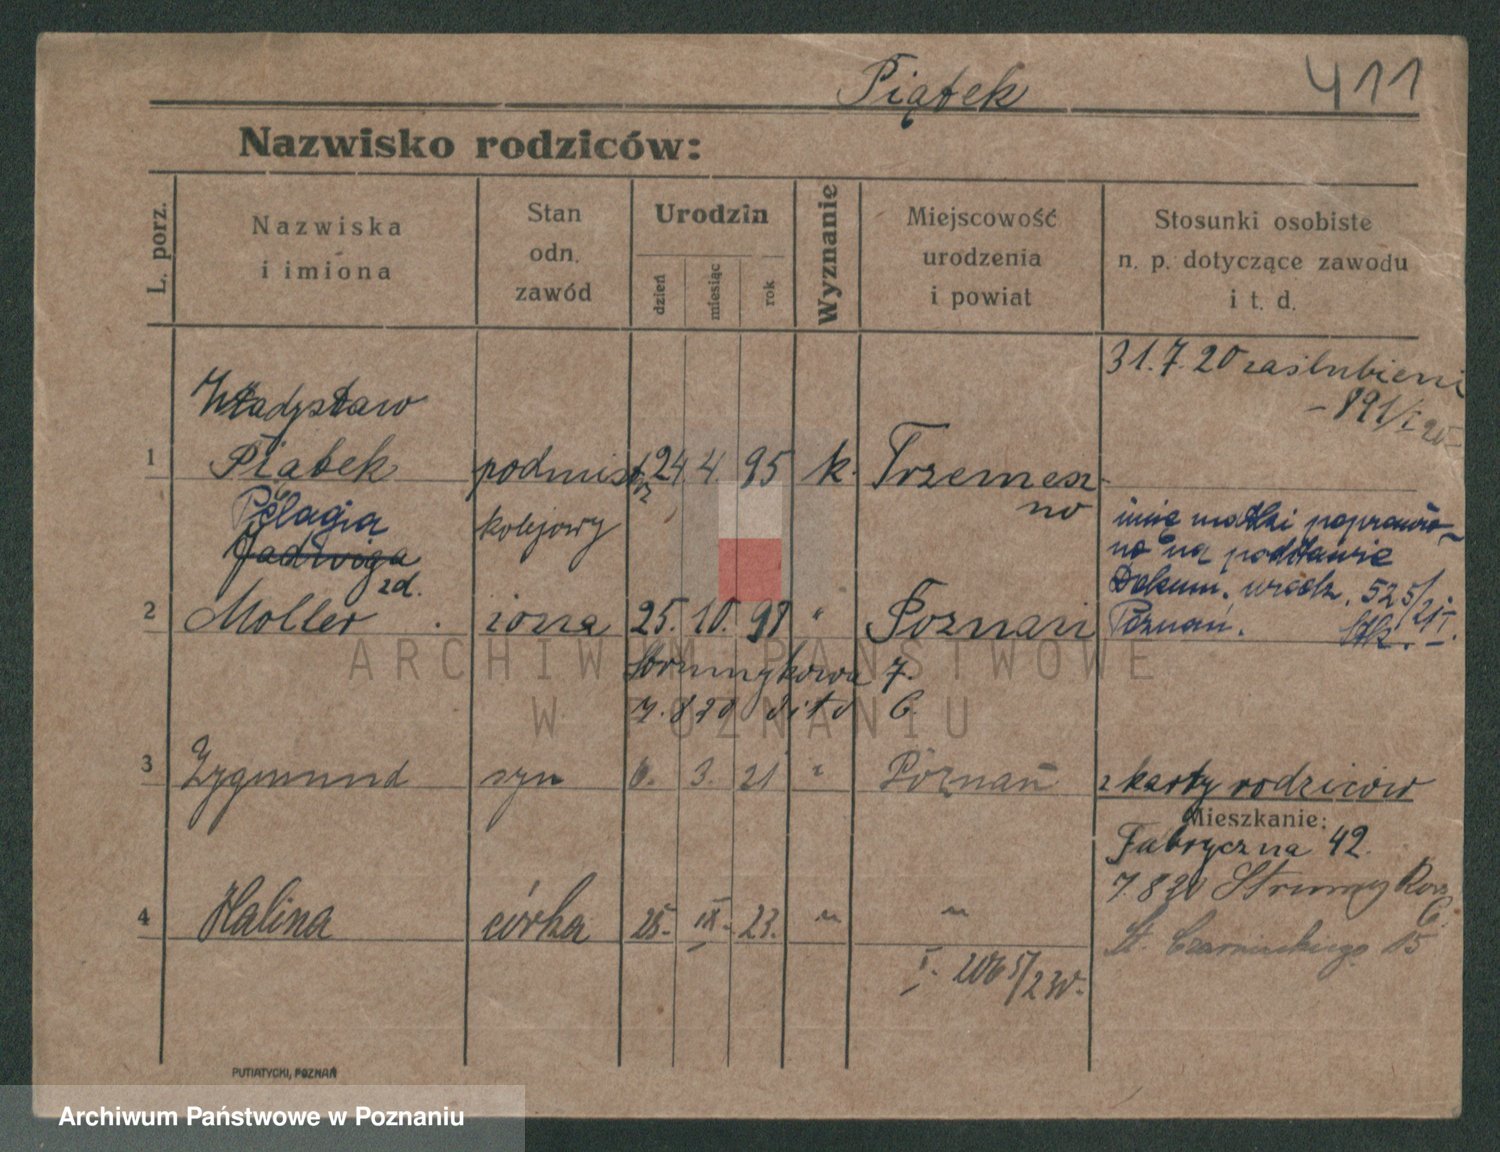 Piątek 411
Nazwisko rodziców:
L. porz.
Nazwiska
i imiona
Stan
odn.
zawód
Urodzin
dzień
miesiąc
rok
Wyznanie
Miejscowość
urodzenia
i powiat
Stosunki osobiste
n. p. dotyczące zawodu
i t. d.
31.7.20 zaślubieni
Władysław
1 Piątek podmistrz 24. 4. 95 k. Trzemesz-
kolejowy no
Pelagia
Jadwiga
zd.
2 Moller żona 25. 10. 98 " Poznań
imię matki poprawio-
no na podstawie
Dokum. urodz. 525/21 I.
Poznań.
Strumykowa 7.
7. 8 20 dito 6
3 Zygmund syn 6. 3. 21 " Poznań
z karty rodziców
Mieszkanie:
Fabryczna 42.
7.8 20 Strumykowa
6.
St. Czarnieckiego 15
4 Halina córka 25. IX. 23. " "
I. 2065/23
PUTIATYCKI, POZNAŃ
ARCHIWUM PAŃSTWOWE
W POZNANIU
Archiwum Państwowe w Poznaniu